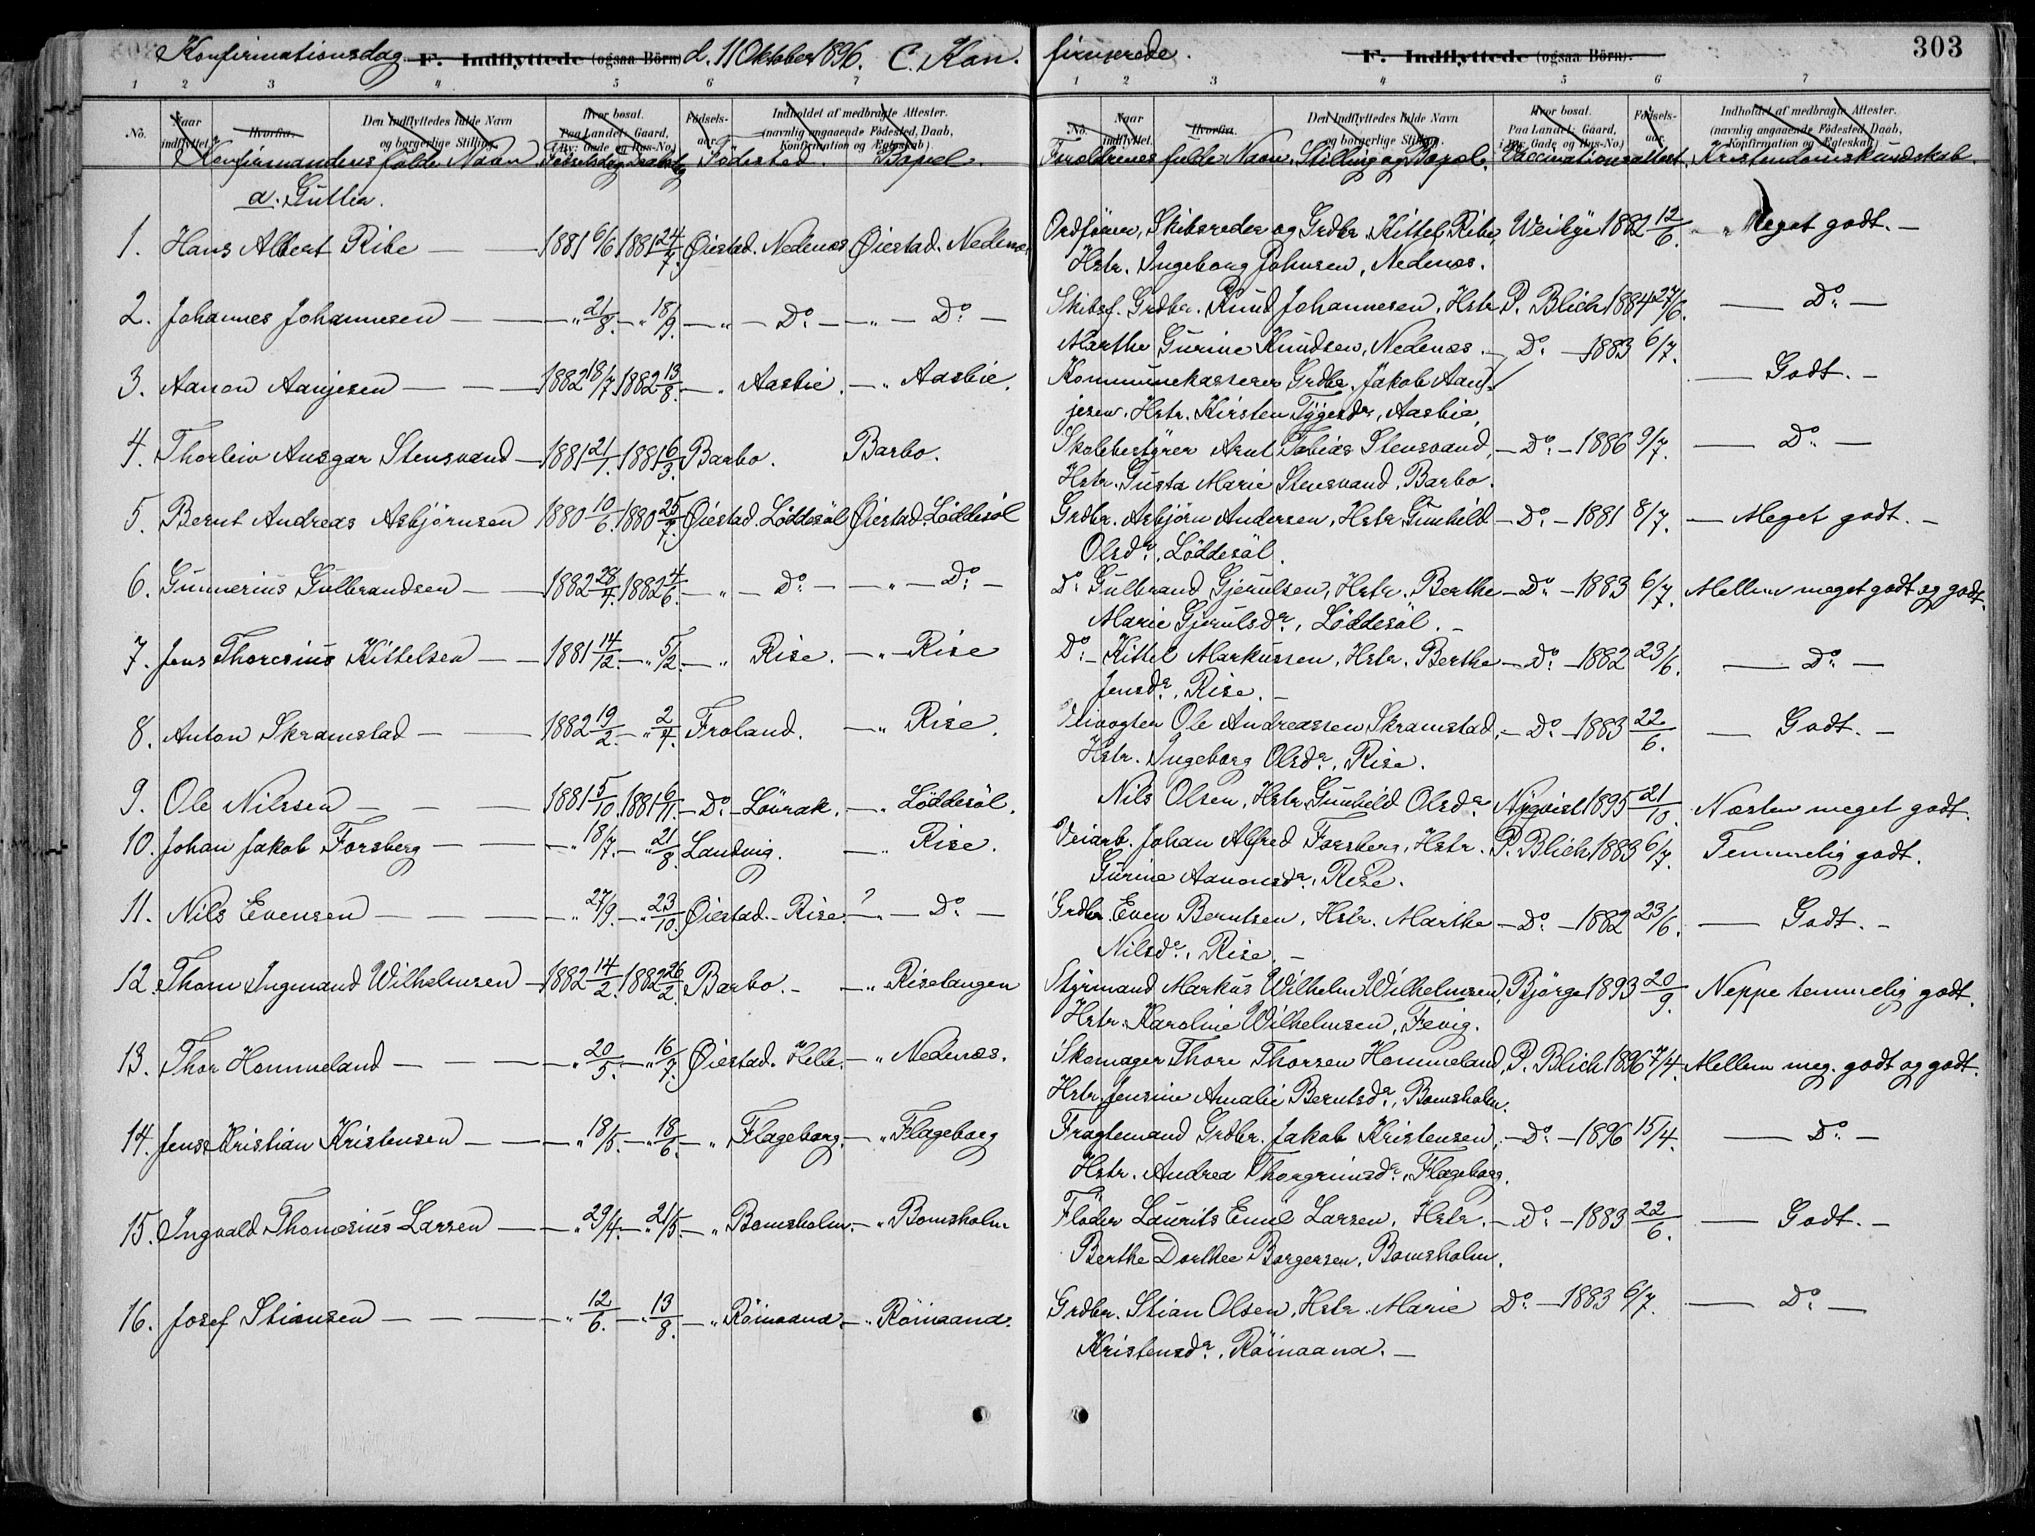 Konfirmationsdag F. Indflyttede (ogsaa Börn) d. 11 Oktober 1896. C. Kon-
firmerede. F. Indflyttede (ogsaa Börn). 303
1 2 3 4 5 6 7
1 2 3 4 5 6 7
No. Naar indflyttet. Hvorfra. Den Indflyttedes fulde Navn og borgerlige Stilling. Hvor bosat. Paa Landet: Gaard, i By: Gade og Hus-No.) Födsels-aar. Indholdet af medbragte Attester. (navnlig angaaende Födested, Daab, Konfirmation og Ægteskab)
No. Naar indflyttet. Hvorfra. Den Indflyttedes fulde Navn og borgerlige Stilling. Hvor bosat. Paa Landet: Gaard, i By: Gade og Hus-No.) Födsels-aar. Indholdet af medbragte Attester. (navnlig angaaende Födested, Daab, Konfirmation og Ægteskab)
Konfirmandens fulde Navn Födselsdag Daabsdag Födested. Bopæl.
Forældrenes fulde Navn, Stilling og Bopæl. Vaccinationsattest. Kristendomskundskab.
a. Gutter.
1. Hans Albert Ribe — 1881 6/6 1881 24/7. Øiestad. Nedenæs Øiestad. Nedenæs.
Ordförer, Skibsreder og Grdbr. Kittel Ribe, Weibye 1882 12/6. — Meget godt. —
Hstr. Ingeborg Johnsen, Nedenæs.
2. Johannes Johannesen — " 21/8. — " 18/9. — " — Do. — — " — Do. —
Skibsf. Grdbr. Knud Johannesen, Hstr. P. Blich 1884 27/6. — Do. —
Marthe Gurine Knudsen, Nedenæs. — Do. — 1883 6/7.
3. Aanon Aanjesen — — 1882 18/7 1882 13/8. — " Aasbie. — " Aasbie.
Kommunekasserer Grdbr. Jakob Aan- — Godt. —
jesen. Hstr. Kirsten Tygesdr., Aasbie,
4. Thorleiv Ansgar Stensvand — 1881 21/1. 1881 6/3. Barbo. Barbo.
Skolebestyrer Arnt Tobias Stensvand, — Do. — 1886 9/7. — Do. —
Hstr. Gusta Marie Stensvand, Barbo.
5. Bernt Andreas Asbjörnsen 1880 10/6. 1880 25/7. Øiestad. Löddesöl Øiestad. Löddesöl
Grdbr. Asbjörn Andersen, Hstr. Gunhild — Do. — 1881 8/7. — Meget godt. —
Olsdr., Löddesöl.
6. Gunnerius Gulbrandsen — — 1882 28/4. 1882 4/6. — " — Do. — — " — Do. —
Do. Gulbrand Gjerulsen, Hstr. Berthe — Do. — 1883 6/7. Mellem meget godt og godt.
Marie Gjerulsdr., Löddesöl. —
7. Jens Thoresius Kittelsen — — 1881 14/12. — " 5/2. — " Rise. — " Rise
Do. — Kittel Markussen, Hstr. Berthe — Do. — 1882 23/6. — Do. —
Jensdr., Rise. —
8. Anton Skramstad — — 1882 19/2. — " 2/4. Froland. — " Rise.
Veivogter Ole Andreassen Skramstad, — Do. — 1883 22/6. — Godt. —
Hstr. Ingeborg Olsdr., Rise.
9. Ole Nilssen — — — 1881 5/10. 1881 6/11. — Do. — Lövrak. — " Löddesöl.
Nils Olsen, Hstr. Gunhild Olsdr. Nyqvist 1895 21/10. Næsten meget godt.
10. Johan Jakob Forsberg — — " 18/7. — " 21/8. Landvig. — " Rise.
Veiarb. Johan Alfred Forsberg, Hstr. P. Blich 1883 6/7. Temmelig godt.
Gurine Aanonsdr., Rise.
11. Nils Evensen — — — " 27/9. — " 23/10. Øiestad. — Rise. ? — " — Do. —
Grdbr. Even Berntsen, Hstr. Marthe — Do. — 1882 23/6. — Godt. —
Nilsdr., Rise. —
12. Thorn Ingmand Wilhelmsen — 1882 14/2. 1882 26/2. Barbo. — — " Riselangen
Styrmand Markus Wilhelm Wilhelmsen, Bjørge 1893 20/9. Neppe temmelig godt.
Hstr. Karoline Wilhelmsen, Fevig.
13. Thor Hommeland — — — " 20/5. — " 16/7. Øiestad. Helle. — " Nedenæs.
Skomager Thore Thorsen Hommeland, P. Blich 1896 7/4. Mellem meg. godt og godt.
Hstr. Jensine Amalie Berntsdr., Bomsholm.
14. Jens Kristian Kristensen — — " 18/5. — " 18/6. — " Flageborg. — " Flageborg
Fragtemand Grdbr. Jakob Kristensen, — Do. — 1896 15/4. — Do. —
Hstr. Andrea Thorgrimsdr., Flageborg.
15. Ingvald Thomesius Larsen — — " 29/4. — " 21/5. — " Bomsholm. — " Bomsholm
Fløder Laurits Emil Larsen, Hstr. — Do. — 1883 22/6. — Godt. —
Berthe Dorthee Borgersen, Bomsholm.
16. Josef Stiansen — — — " 12/6. — " 13/8. — " Röinaand. — " Röinaand.
Grdbr. Stian Olsen, Hstr. Marie Do. — 1883 6/7. — Do. —
Kristensdr., Röinaand. —